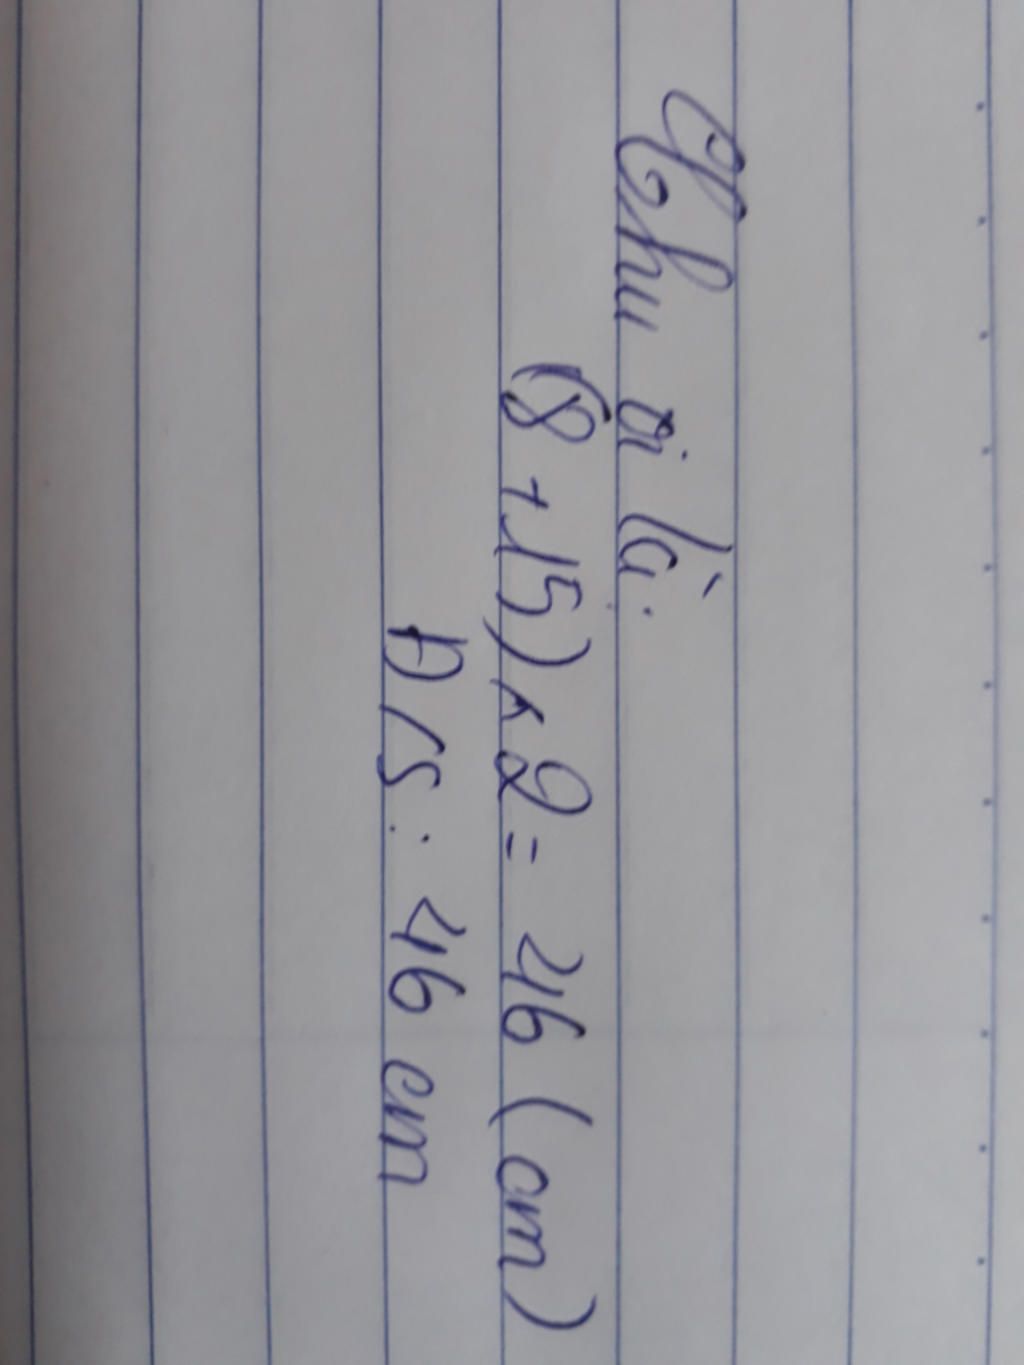 Chu vi là:
(8 + 15) x 2 = 46 (cm)
Đ/S: 46 cm